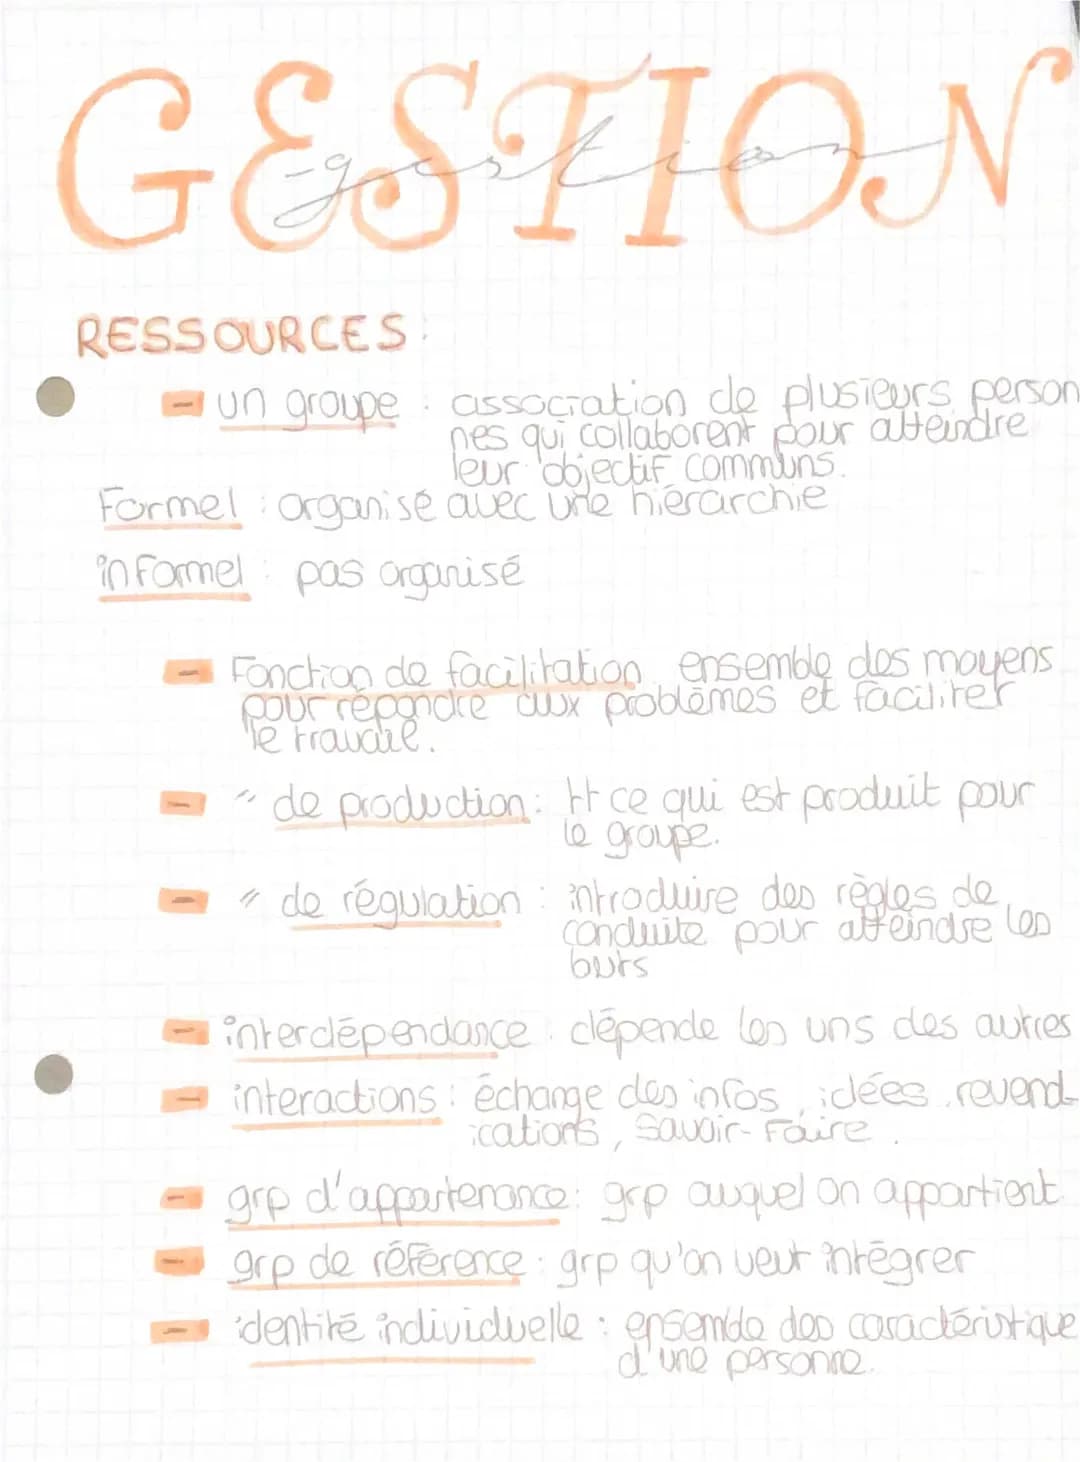 GESTION
gestion
RESSOURCES :
- un groupe : association de plusieurs person
nes qui collaborent pour atteindre
leur objectif communs.
Formel : organisé avec une hiérarchie
informel : pas organisé
- Fonction de facilitation : ensemble des moyens
pour répondre aux problèmes et faciliter
le travail.
- " de production : tt ce qui est produit pour
le groupe.
- " de régulation : introduire des règles de
conduite pour atteindre les
buts
- interdépendance : dépende les uns des autres
- interactions : échange des infos, idées, revend-
ications, savoir-faire.
- grp d'appartenance : grp auquel on appartient
- grp de référence : grp qu'on veut intégrer
- identité individuelle : ensemble des caractéristique
d'une personne.